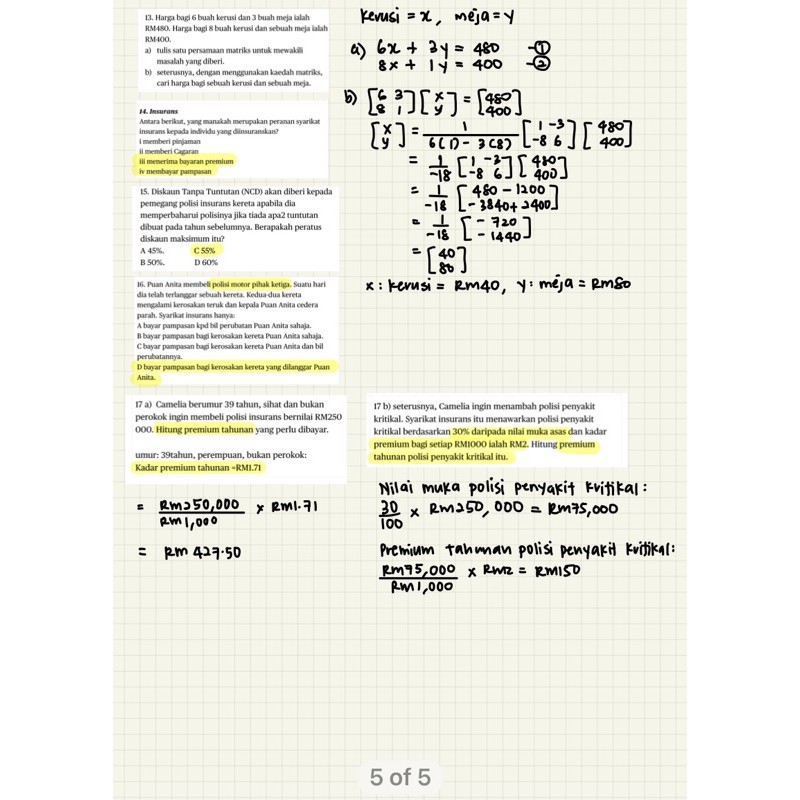 13. Harga bagi 6 buah kerusi dan 3 buah meja ialah
RM480. Harga bagi 8 buah kerusi dan sebuah meja ialah
RM400.
a) tulis satu persamaan matriks untuk mewakili
masalah yang diberi.
b) seterusnya, dengan menggunakan kaedah matriks,
cari harga bagi sebuah kerusi dan sebuah meja.
kerusi = x, meja = y
a) 6x + 3y = 480 -①
8x + 1y = 400 -②
b) [6 3 / 8 1] [x / y] = [480 / 400]
[x / y] = 1 / 6(1) - 3(8) [1 -3 / -8 6] [480 / 400]
= 1 / -18 [1 -3 / -8 6] [480 / 400]
= 1 / -18 [480 - 1200 / -3840 + 2400]
= 1 / -18 [-720 / -1440]
= [40 / 80]
x : kerusi = RM40, y : meja = RM80
14. Insurans
Antara berikut, yang manakah merupakan peranan syarikat
insurans kepada individu yang diinsuranskan?
i memberi pinjaman
ii memberi Cagaran
iii menerima bayaran premium
iv membayar pampasan
15. Diskaun Tanpa Tuntutan (NCD) akan diberi kepada
pemegang polisi insurans kereta apabila dia
memperbaharui polisinya jika tiada apa2 tuntutan
dibuat pada tahun sebelumnya. Berapakah peratus
diskaun maksimum itu?
A 45%. C 55%
B 50%. D 60%
16. Puan Anita membeli polisi motor pihak ketiga. Suatu hari
dia telah terlanggar sebuah kereta. Kedua-dua kereta
mengalami kerosakan teruk dan kepala Puan Anita cedera
parah. Syarikat insurans hanya:
A bayar pampasan kpd bil perubatan Puan Anita sahaja.
B bayar pampasan bagi kerosakan kereta Puan Anita sahaja.
C bayar pampasan bagi kerosakan kereta Puan Anita dan bil
perubatannya.
D bayar pampasan bagi kerosakan kereta yang dilanggar Puan
Anita.
17 a) Camelia berumur 39 tahun, sihat dan bukan
perokok ingin membeli polisi insurans bernilai RM250
000. Hitung premium tahunan yang perlu dibayar.
umur: 39tahun, perempuan, bukan perokok:
Kadar premium tahunan =RM1.71
= RM250,000 / RM1,000 × RM1.71
= RM 427.50
17 b) seterusnya, Camelia ingin menambah polisi penyakit
kritikal. Syarikat insurans itu menawarkan polisi penyakit
kritikal berdasarkan 30% daripada nilai muka asas dan kadar
premium bagi setiap RM1000 ialah RM2. Hitung premium
tahunan polisi penyakit kritikal itu.
Nilai muka polisi penyakit kritikal :
30 / 100 × RM250,000 = RM75,000
Premium tahunan polisi penyakit kritikal:
RM75,000 / RM1,000 × RM2 = RM150
5 of 5